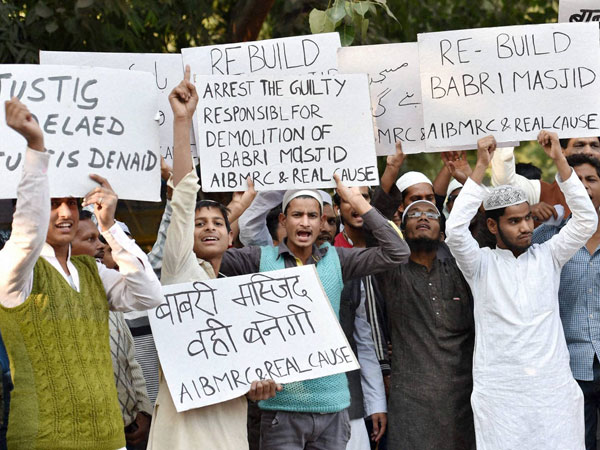 JUSTIC
ELAED
IS DENAID
RE BUILD
ARREST THE GUILTY
RESPONSIBL FOR
DEMOLITION OF
BABRI MASJID
AIBMRC & REAL CAUSE
BMRC &
RE- BUILD
BABRI MASJID
AIBMRC & REAL CAUSE
बाबरी मस्जिद
वही बनेगी
AIBMRC & REAL CAUSE